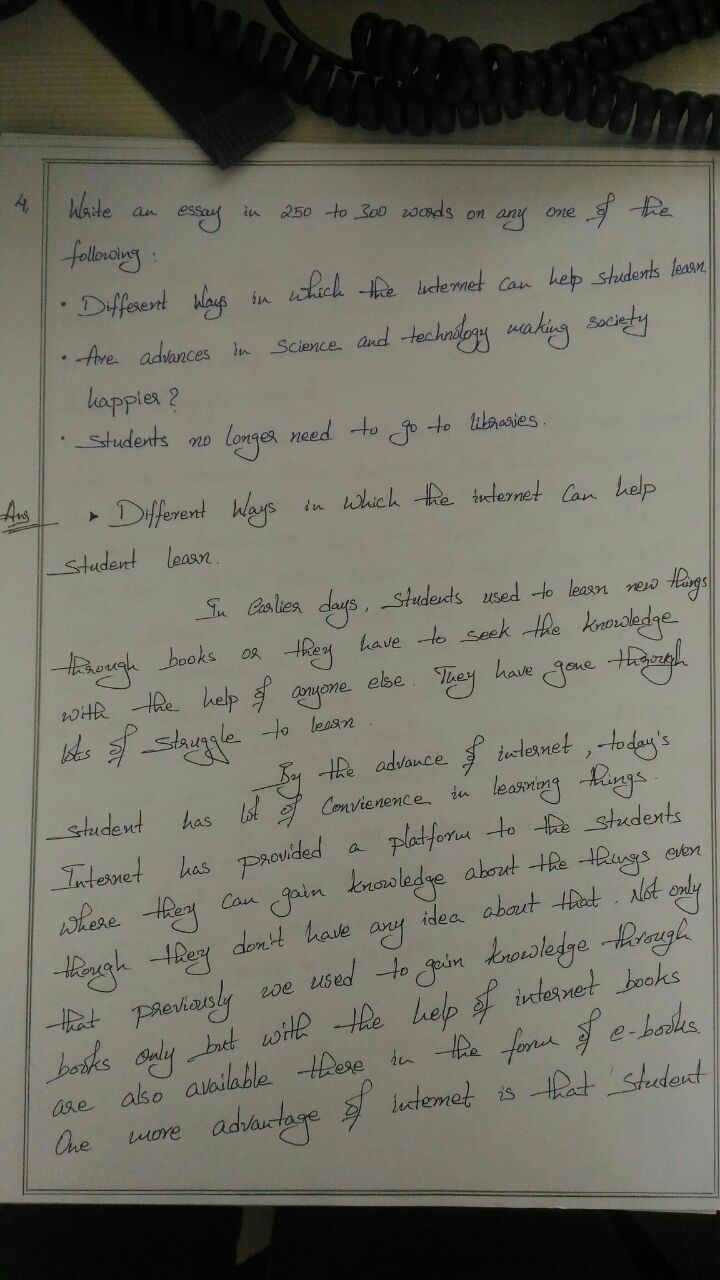 4, Write an essay in 250 to 300 words on any one of the
following :
• Different Ways in which the internet can help students learn
• Are advances in science and technology making society
happier ?
• Students no longer need to go to libraries.
Ans ▸ Different Ways in which the internet can help
student learn.
In earlier days, students used to learn new things
through books or they have to seek the knowledge
with the help of anyone else. They have gone through
lots of struggle to learn.
By the advance of internet, today's
student has lot of convienence in learning things.
Internet has provided a platform to the students
where they can gain knowledge about the things even
though they don't have any idea about that. Not only
that previously we used to gain knowledge through
books only but with the help of internet books
are also available there in the form of e-books.
One more advantage of internet is that student